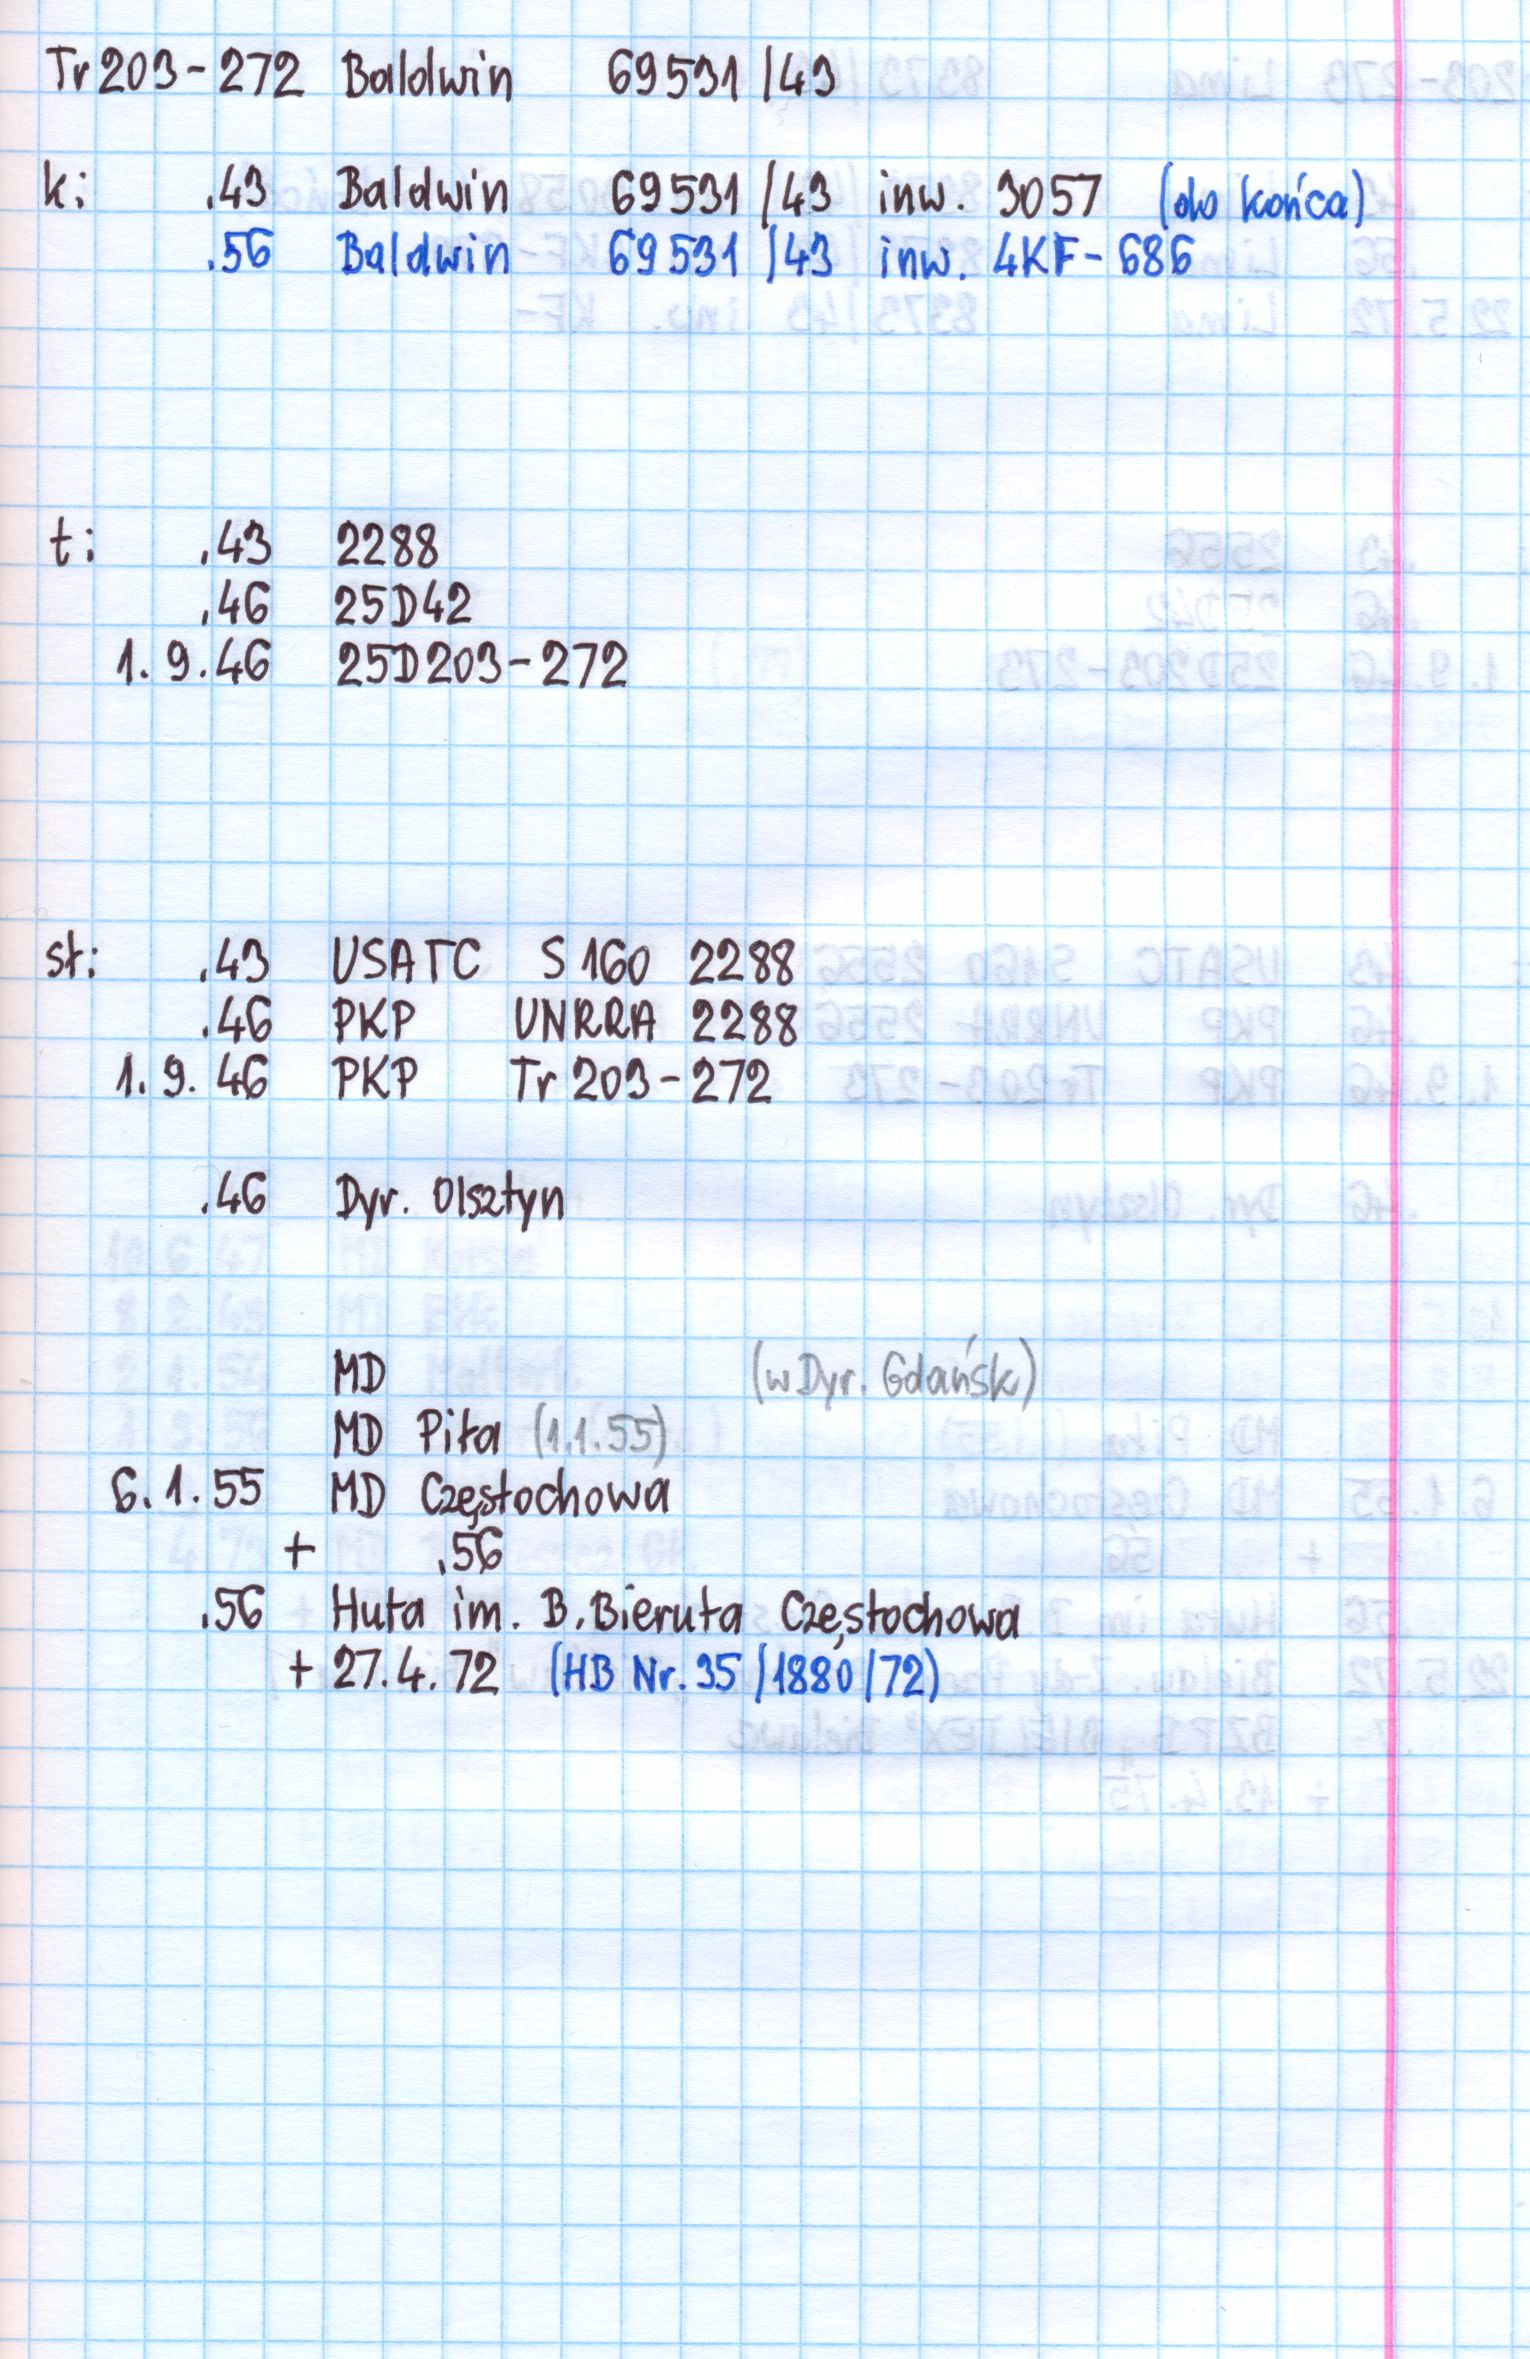 Tr203-272 Baldwin 69531/43
k: .43 Baldwin 69531/43 inw. 3057 (do końca)
.56 Baldwin 69531/43 inw. 4KF-686
t: .43 2288
.46 25D42
1.9.46 25D203-272
st: .43 USATC S160 2288
.46 PKP UNRRA 2288
1.9.46 PKP Tr203-272
.46 Dyr. Olsztyn
MD (w Dyr. Gdańsk)
MD Piła (1.1.55)
6.1.55 MD Częstochowa
+ .56
.56 Huta im. B.Bieruta Częstochowa
+ 27.4.72 (HB Nr.35/1880/72)